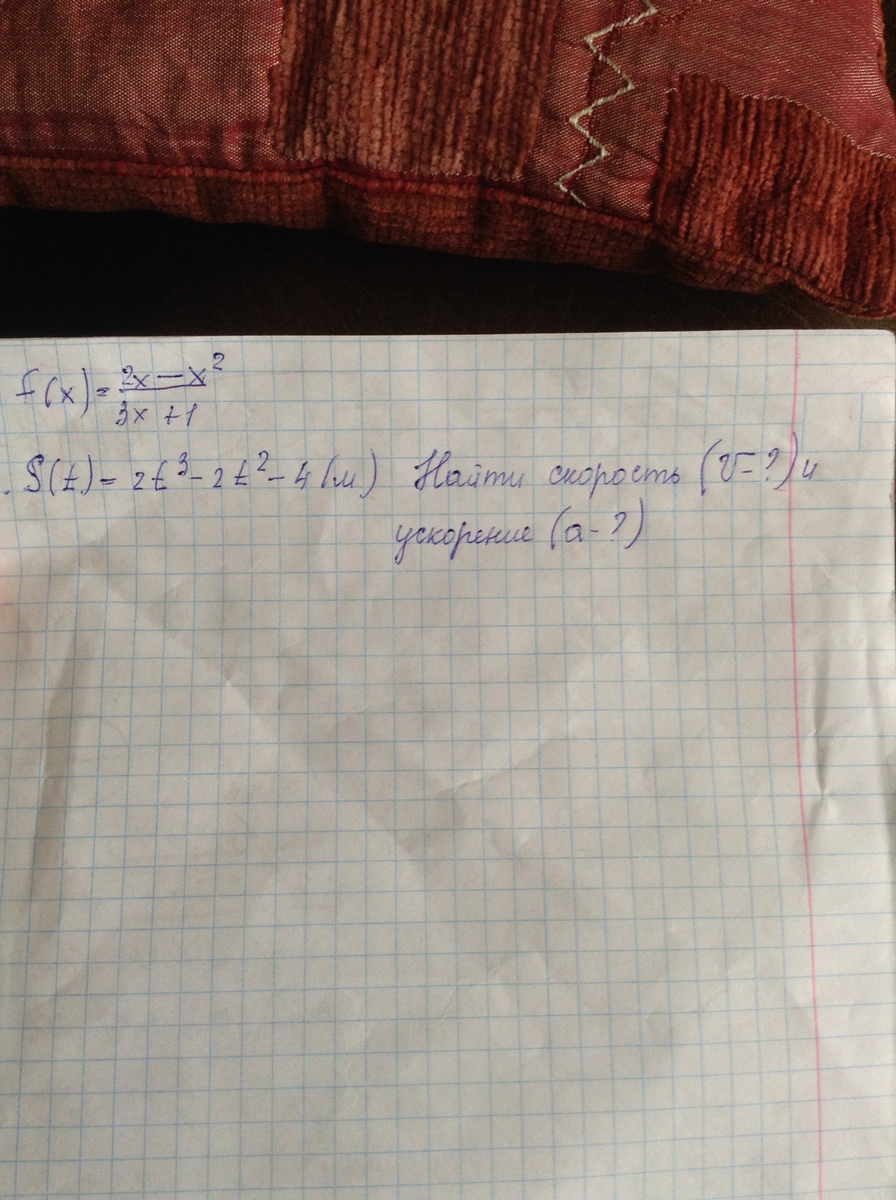 f(x)=\frac{2x-x^2}{3x+1}
S(t)=2t^3-2t^2-4(м) Найти скорость (V-?) и
ускорение (a-?)